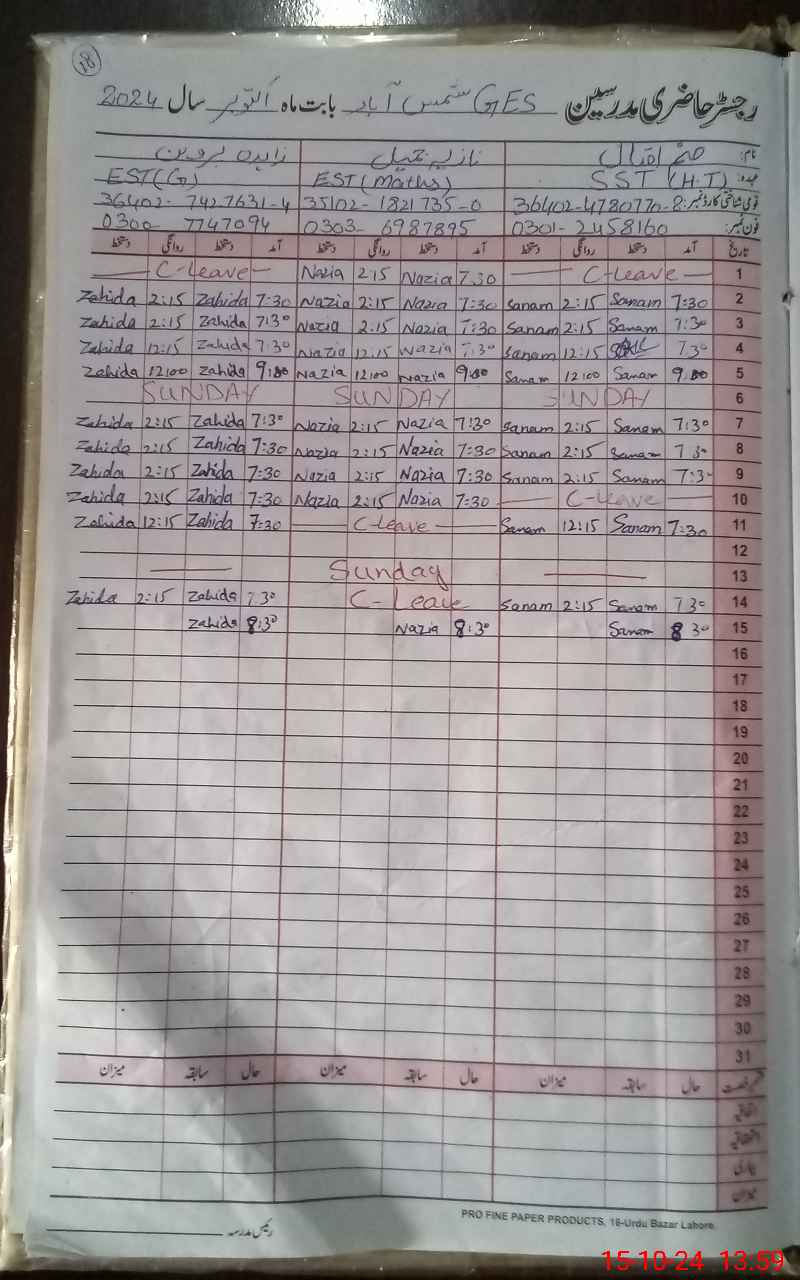 18
رجسٹر حاضری مدرسین GES شمس آباد بابت ماہ اکتوبر سال 2024
نام: صنم اقبال نازیہ زاہدہ پروین
عہدہ: SST (H.T) EST (Maths) EST (G)
قومی شناختی کارڈ نمبر: 36402-4780770-8 35102-1821735-0 36402-7427631-4
فون نمبر: 0301-2458160 0303-6987895 0300-7747094
تاریخ آمد دستخط روانگی دستخط آمد دستخط روانگی دستخط آمد دستخط روانگی دستخط
C-Leave Nazia 2:15 Nazia 7.30 C-Leave 1
Zahida 2:15 Zahida 7:30 Nazia 2:15 Nazia 7:30 Sanam 2:15 Sanam 7:30 2
Zahida 2:15 Zahida 7:30 Nazia 2:15 Nazia 7:30 Sanam 2:15 Sanam 7:30 3
Zahida 12:15 Zahida 7:30 Nazia 12:15 Nazia 7:30 Sanam 12:15 7:30 4
Zahida 12:00 Zahida 9:00 Nazia 12:00 Nazia 9:00 Sanam 12:00 Sanam 9:00 5
SUNDAY SUNDAY SUNDAY 6
Zahida 2:15 Zahida 7:30 Nazia 2:15 Nazia 7:30 Sanam 2:15 Sanam 7:30 7
Zahida 2:15 Zahida 7:30 Nazia 2:15 Nazia 7:30 Sanam 2:15 Sanam 7 30 8
Zahida 2:15 Zahida 7:30 Nazia 2:15 Nazia 7:30 Sanam 2:15 Sanam 7:30 9
Zahida 2:15 Zahida 7:30 Nazia 2:15 Nazia 7:30 C-Leave 10
Zahida 12:15 Zahida 7:30 C-Leave Sanam 12:15 Sanam 7:30 11
12
Sunday 13
Zahida 2:15 Zahida 7.30 C-Leave Sanam 2:15 Sanam 7 30 14
Zahida 8:30 Nazia 8:30 Sanam 8 30 15
16
17
18
19
20
21
22
23
24
25
26
27
28
29
30
31
قسم رخصت حال سابقہ میزان حال سابقہ میزان حال سابقہ میزان
اتفاقیہ
استحقاقیہ
بیماری
میزان
رئیس مدرسہ
PRO FINE PAPER PRODUCTS, 16-Urdu Bazar Lahore.
15-10-24 13:59